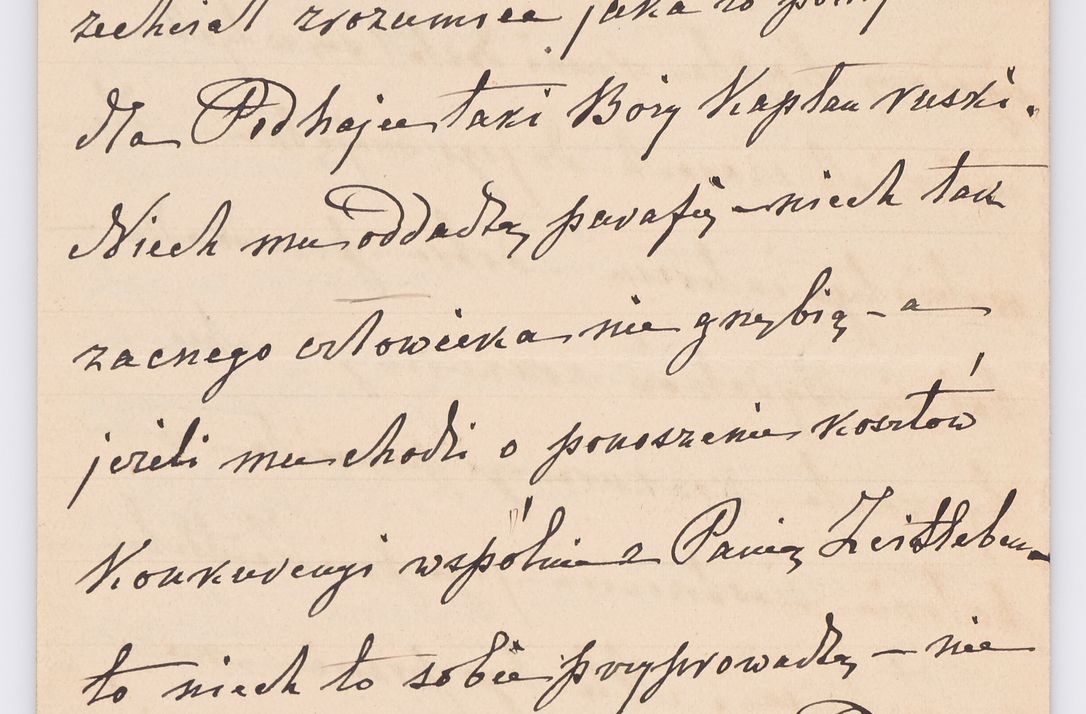 zechciał zrozumieć jaka to
dla Podhajec taki Boży Kapłan ruski.
Niech mu oddadzą parafię – niech tak
zacnego człowieka nie gnębią – a
jeżeli mu chodzi o ponoszenie kosztów
Konkurencyi wspólnie z Panią
to niech to sobie przyprowadzą – nie